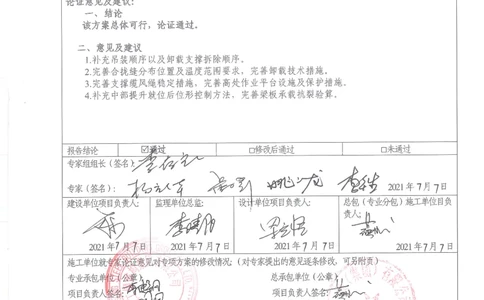 论证意见及建议:
一、结论
该方案总体可行，论证通过。
二、意见及建议
1.补充吊装顺序以及卸载支撑拆除顺序。
2.完善合拢缝分布位置及温度范围要求，完善卸载技术措施。
3.完善支撑缆风绳稳定措施，完善高处作业平台设施及保护措施。
4.补充中部提升就位后位形控制方法，完善梁板承载抗裂验算。
报告结论 ☑通过 □修改后通过 □未通过
专家组组长(签名):
专家(签名): 2021年7月7日
建设单位项目负责人: 监理单位总监: 设计单位项目负责人: 总包(专业分包)施工单位项目负责人:
2021年7月7日 2021年7月7日 2021年7月7日 2021年7月7日
施工单位就专家论证意见对专项方案的修改情况:(对专家提出的意见逐条修改,可另附页)
专业承包单位(公章): 总承包单位(公章):
项目负责人签名: 项目负责人签名: